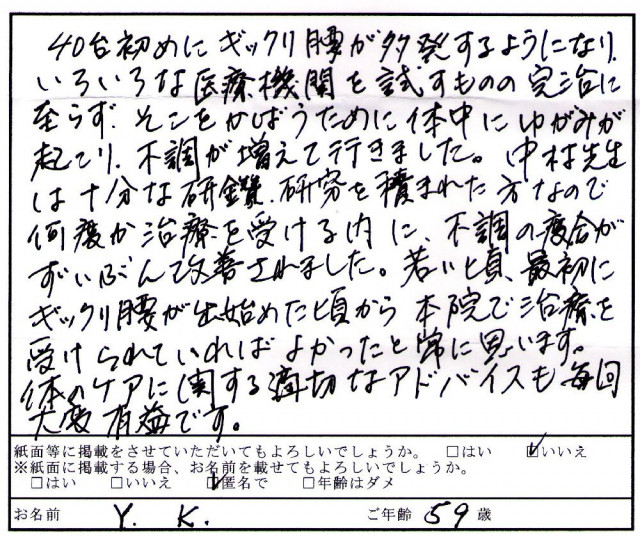 40台初めにギックリ腰が多発するようになり、
いろいろな医療機関を試すものの完治に
至らず、そこをかばうために体中にゆがみが
起こり、不調が増えて行きました。中村先生
は十分な研鑽、研究を積まれた方なので
何度か治療を受ける内に、不調の度合が
ずいぶん改善されました。若い頃、最初に
ギックリ腰が出始めた頃から本院で治療を
受けられていればよかったと常に思います。
体のケアに関する適切なアドバイスも毎回
大変有益です。
紙面等に掲載をさせていただいてもよろしいでしょうか。 □はい ☑いいえ
※紙面に掲載する場合、お名前を載せてもよろしいでしょうか。
□はい □いいえ ☑匿名で □年齢はダメ
お名前 Y. K. ご年齢 59 歳